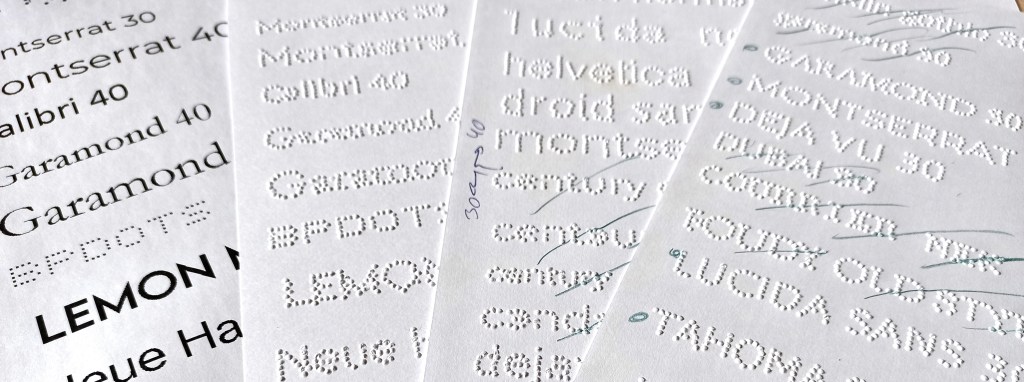 ntserrat 30
ontserrat 40
alibri 40
Garamond 40
Garamond
BPDOTS
LEMON
eue Ha
Montserrat 30
Montserrat
Calibri 40
Garamond 4
Garamon
BPDOTS
LEMON
Neue
lucida
helvetica
droid san
montse
century
centu
century
cond
deja
30 appo 40
Garamond 30
GARAMOND 30
MONTSERRAT
DEJA VU 30
DUBAI 30
COURRIER NEW
FOUDY OLD STY
LUCIDA SANS 30
TAHOMA